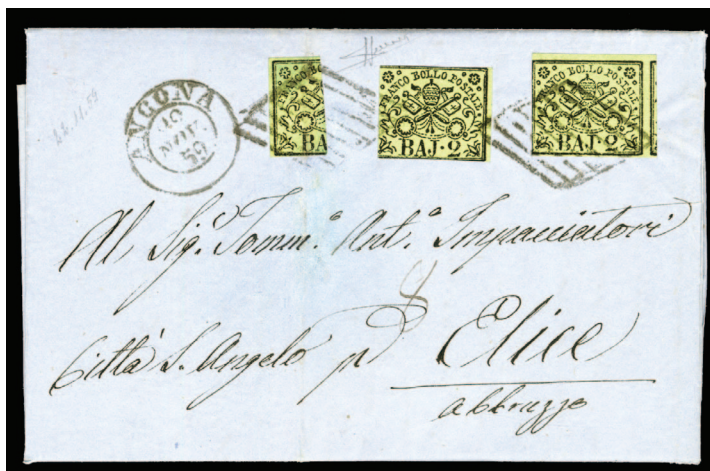 ANCONA
NOV.
59
22.11.59
FRANCO BO
BA
FRANCO BOLLO POSTALE
BAJ·2
FRANCO BOLLO POSTALE
BAJ·2
Al Sig.r Tomm.o Ant.o Impacciatori
8
Città S. Angelo p
Elice
abbruzzo